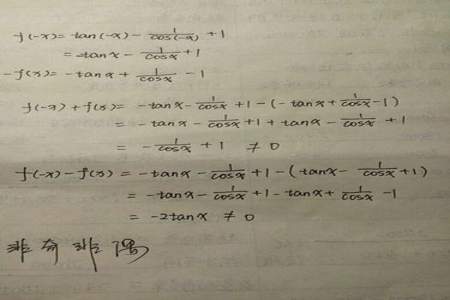 f(-x) = tan(-x) - 1/cos(-x) + 1
= -tanx - 1/cosx + 1
-f(x) = -tanx + 1/cosx - 1
f(-x) + f(x) = -tanx - 1/cosx + 1 - (-tanx + 1/cosx - 1)
= -tanx - 1/cosx + 1 + tanx - 1/cosx + 1
= -1/cosx + 1 ≠ 0
f(-x) - f(x) = -tanx - 1/cosx + 1 - (tanx - 1/cosx + 1)
= -tanx - 1/cosx + 1 - tanx + 1/cosx - 1
= -2tanx ≠ 0
非奇非偶